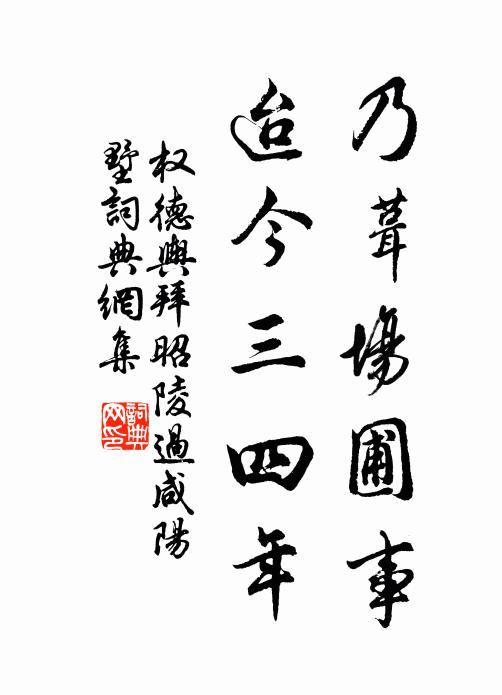 乃葺場圃事
迨今三四年
权德輿拜昭陵過咸陽
墅詞典網集
詞典
网印